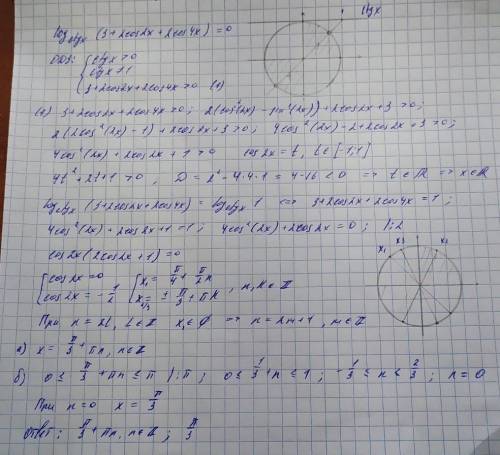 ctgx
log_ctgx (3+2cos2x+2cos4x)=0
ОДЗ: { ctgx>0
ctgx≠1
3+2cos2x+2cos4x>0 (*)
(*) 3+2cos2x+2cos4x>0; 2(cos²(2x)-sin²(2x))+2cos2x+3>0;
2(2cos²(2x)-1)+2cos2x+3>0; 4cos²(2x)-2+2cos2x+3>0;
4cos²(2x)+2cos2x+1>0 cos2x=t, t∈[-1;1]
4t²+2t+1>0, D=2²-4·4·1=4-16<0 => t∈R => x∈R
log_ctgx (3+2cos2x+2cos4x)=log_ctgx 1 <=> 3+2cos2x+2cos4x=1;
4cos²(2x)+2cos2x+1=1; 4cos²(2x)+2cos2x=0; |:2
x₁ x₃ x₂
cos2x(2cos2x+1)=0
[ cos2x=0 [ x₁=π/4+π/2 n
cos2x=-1/2 x₂/₃=±π/3+πk, n,k∈Z
При n=2l, l∈Z x₁∈∅ => n=2m+1, m∈Z
а) x=π/3+πn, n∈Z
б) 0≤π/3+πn≤π |:π; 0≤1/3+n≤1; -1/3≤n≤2/3; n=0
При n=0 x=π/3
Ответ: π/3+πn, n∈Z; π/3